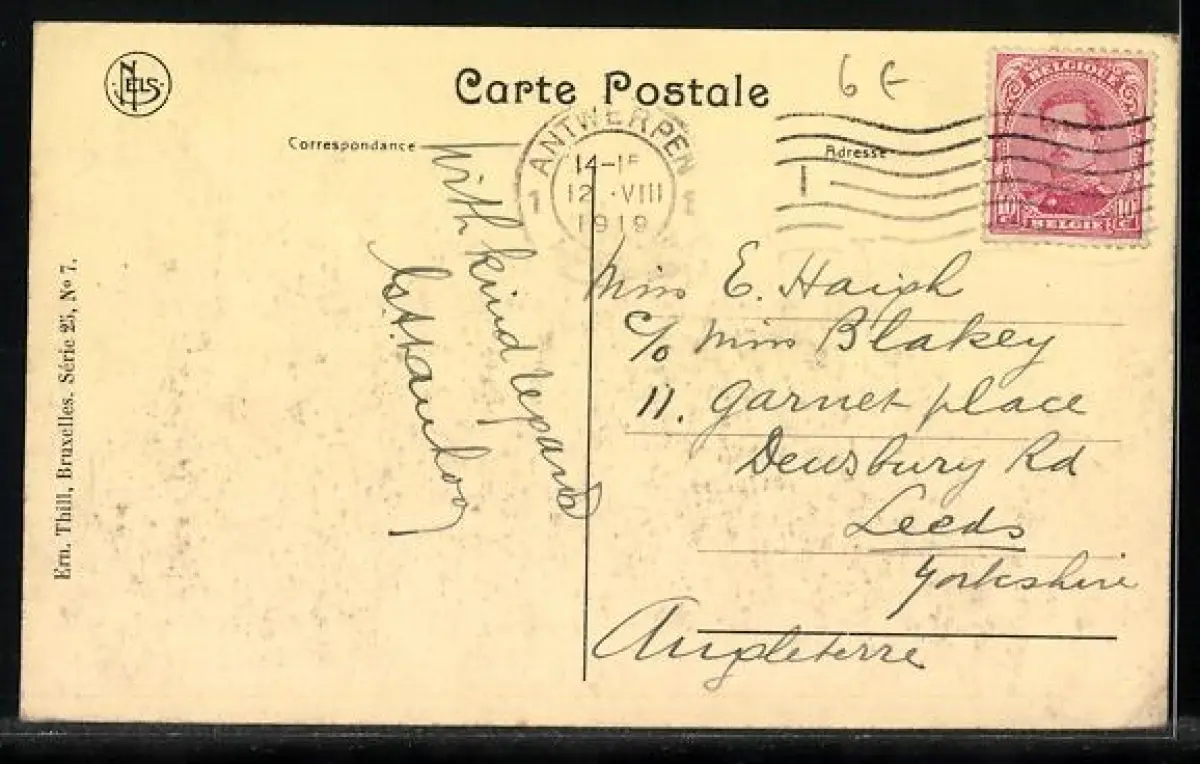 NELS
Carte Postale
6 €
BELGIQUE
10 10
BELGIE
Correspondance
Adresse
ANTWERPEN
1 1
14-15
12 · VIII
1919
With kind regards
Miss E. Haigh
c/o Miss Blakey
11. Garnet place
Dewsbury Rd
Leeds
Yorkshire
Angleterre
Ern. Thill, Bruxelles. Série 25, No 7.